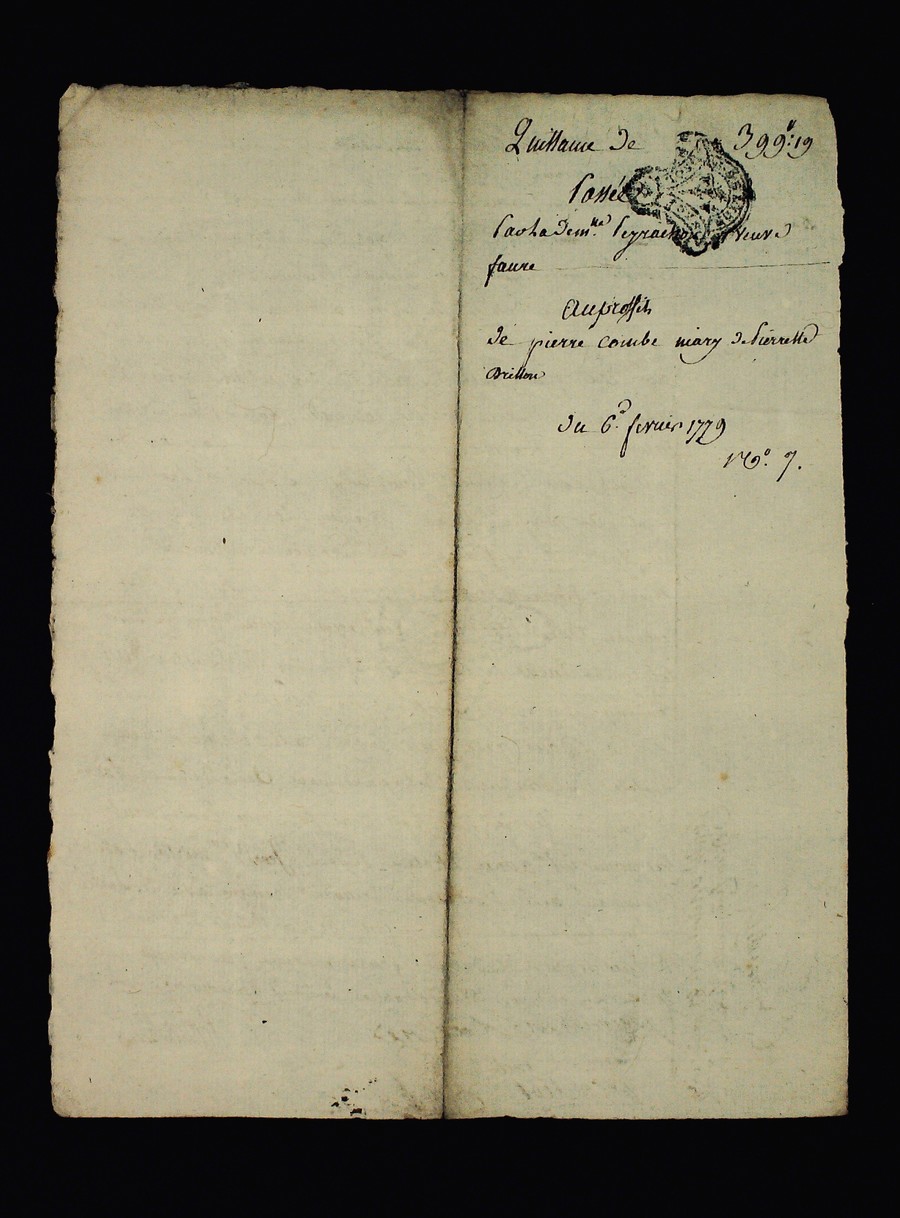 Quittance de 399ᵗᵗ: 19
Passée
Par la dem.lle veuve
faure
Au proffit
de pierre Combe mary de Pierrette
Brillon
du 6.e fevrier 1779
N.o 7.